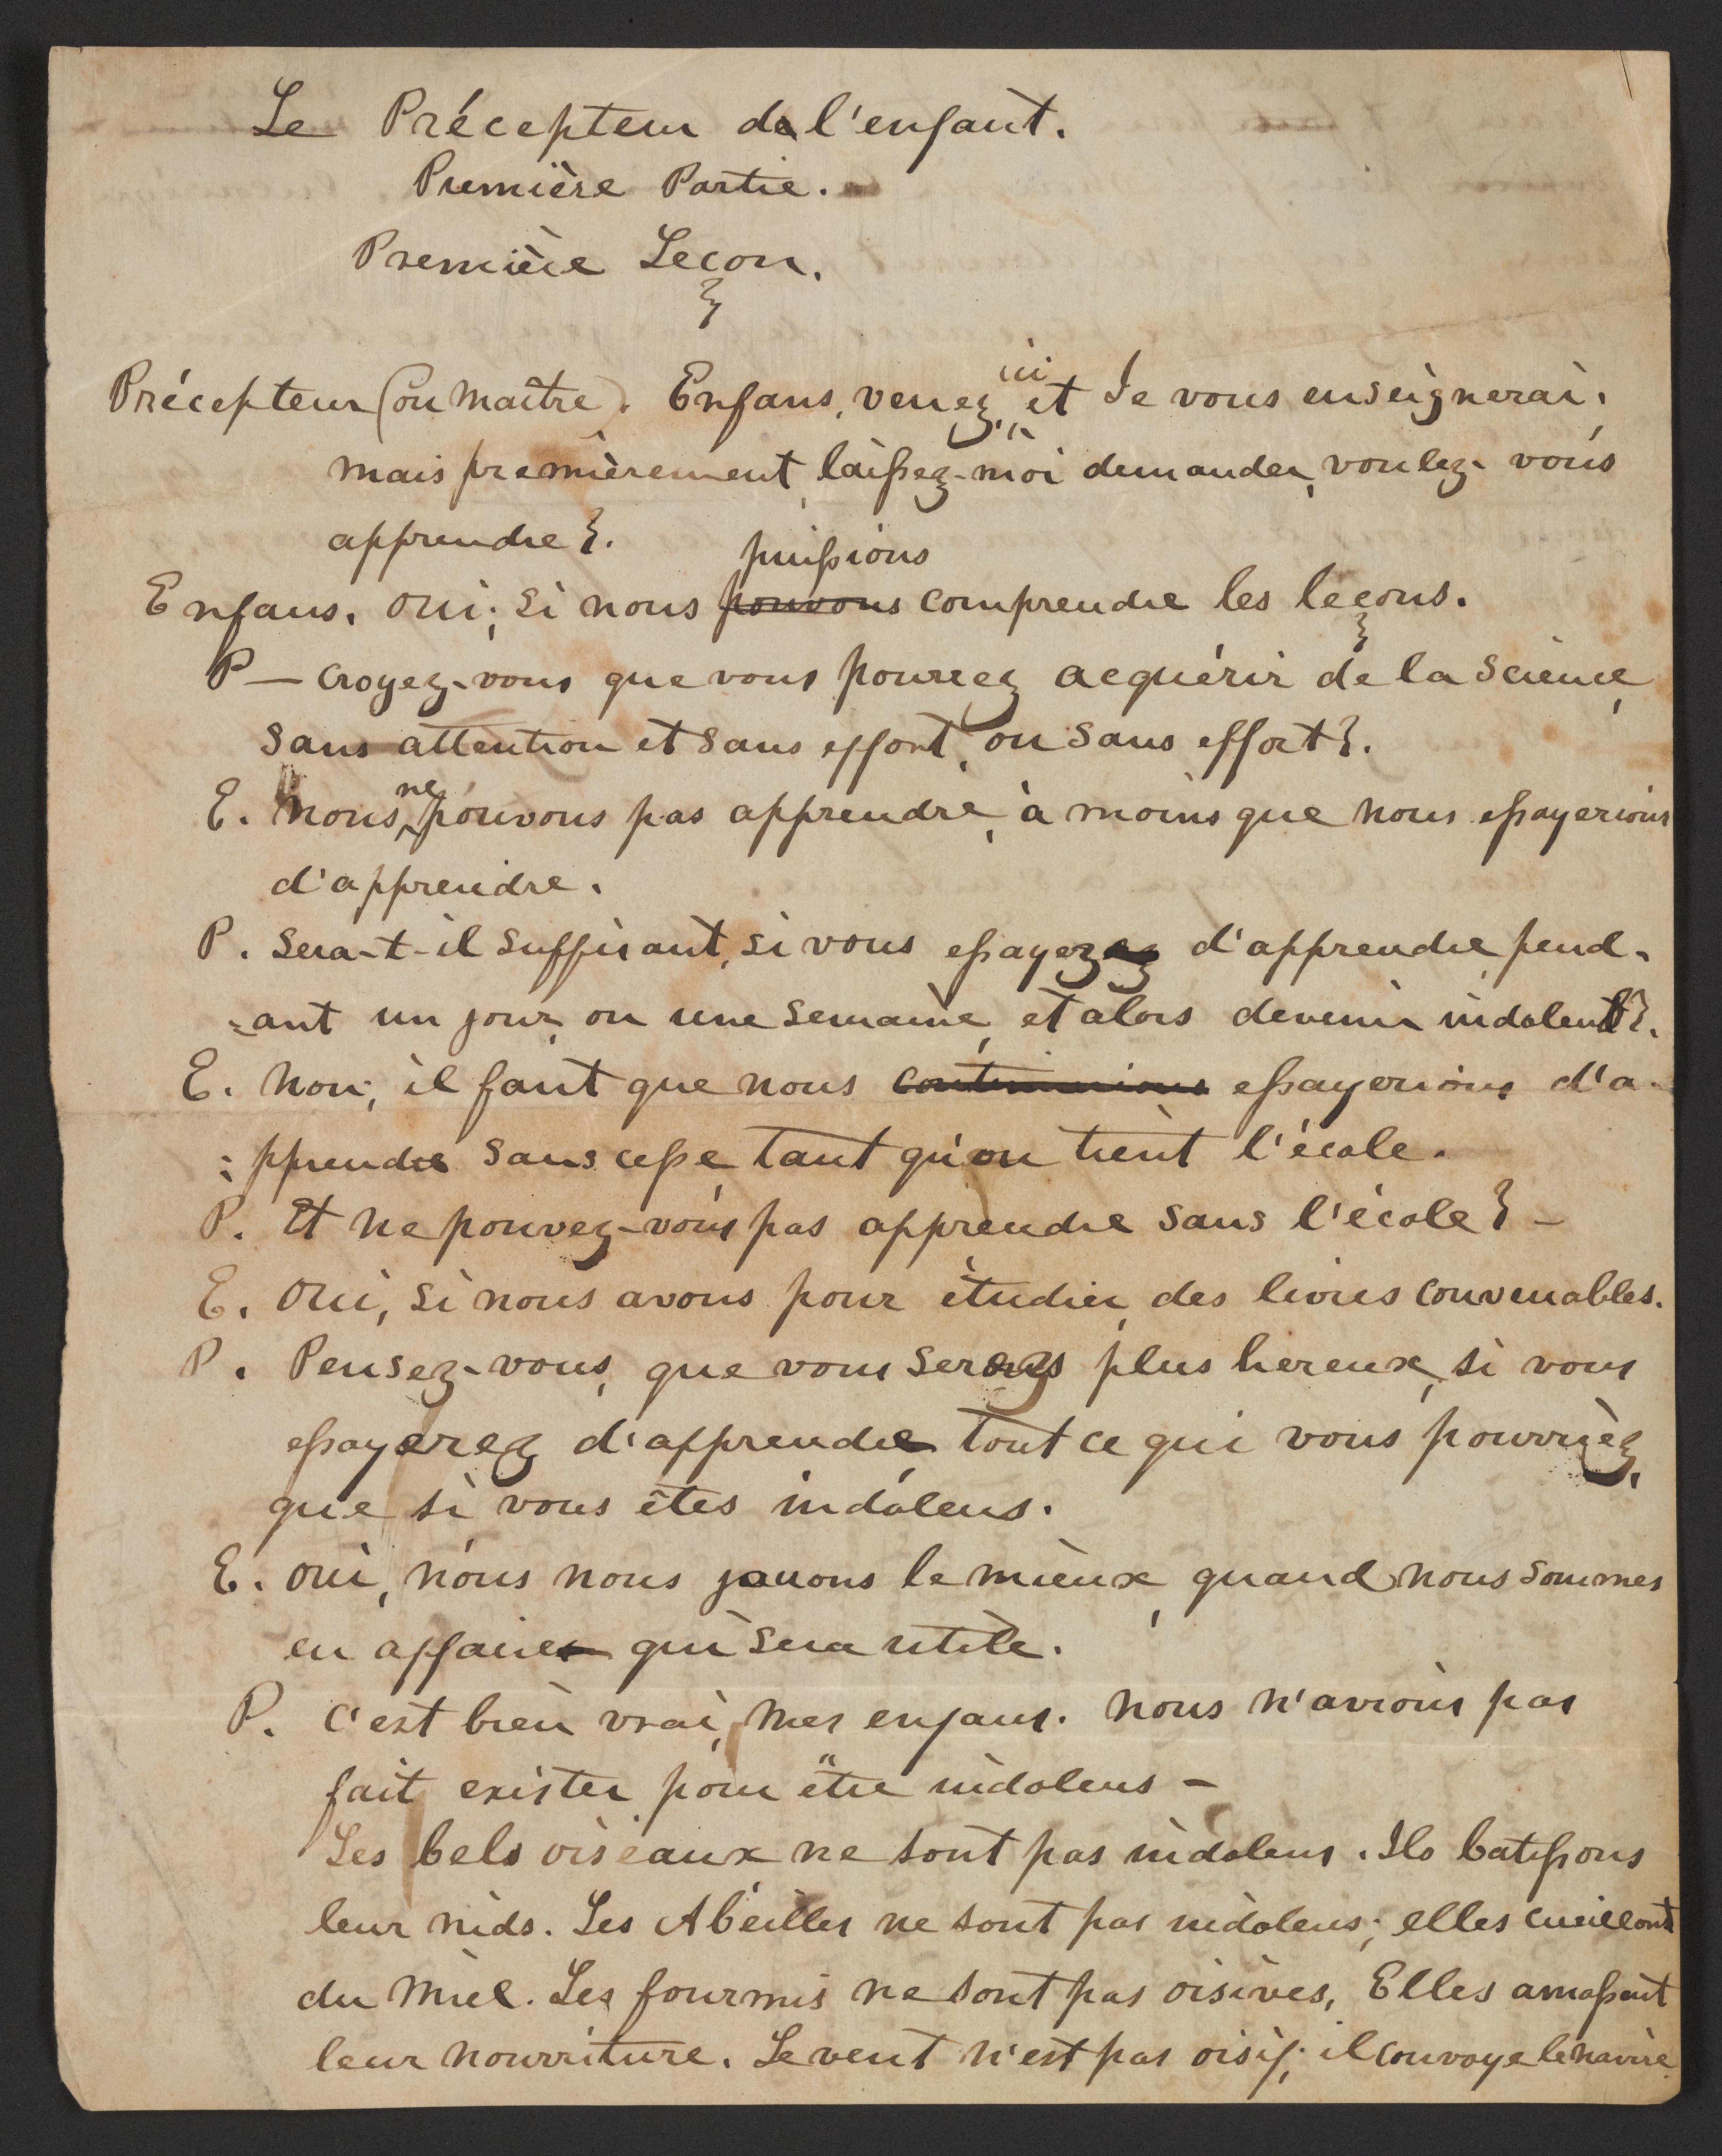 Le Précepteur de l'enfant.
Première Partie.
Première Leçon.
Précepteur (ou Maître). Enfans, venez ici et Je vous enseignerai;
mais premièrement, laissez-moi demander, voulez-vous
apprendre?
puissions
Enfans. Oui; si nous pouvons comprendre les leçons.
P — Croyez-vous que vous pourrez acquérir de la Science,
sans attention et sans effort, ou sans effort?
E. Nous ne pouvons pas apprendre, à moins que nous essayerions
d'apprendre.
P. Sera-t-il suffisant, si vous essayez d'apprendre pend-
-ant un jour, ou une semaine, et alors devenir indolent?
E. Non; il faut que nous continuions essayerions d'a-
-pprendre sans cesse, tant qu'on tient l'école.
P. Et ne pouvez-vous pas apprendre sans l'école? —
E. Oui, si nous avons pour étudier, des livres convenables.
P. Pensez-vous, que vous serez plus hereux, si vous
essayerez d'apprendre tout ce qui vous pourrièz,
que si vous êtes indolens.
E. Oui, nous nous jouons le mieux, quand nous sommes
en affaire qui sera utile.
P. C'est bien vrai, mes enfans. Nous n'avions pas
fait exister pour être indolens —
Les bels oiseaux ne sont pas indolens. Ils batissons
leur nids. Les Abeilles ne sont pas indolens; elles cueillont
du Miel. Les fourmis ne sont pas oisives, Elles amassent
leur nourriture. Le vent n'est pas oisif; il convoye le navire